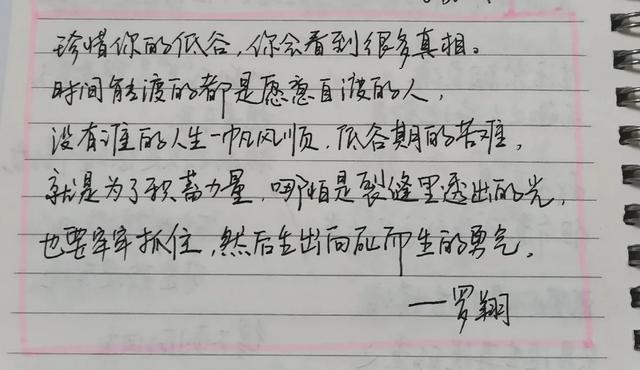 珍惜你的低谷,你会看到很多真相。
时间能渡的都是愿意自渡的人,
没有谁的人生一帆风顺,低谷期的苦难,
就是为了积蓄力量,哪怕是裂缝里透出的光,
也要牢牢抓住,然后生出向阳而生的勇气。
—罗翔